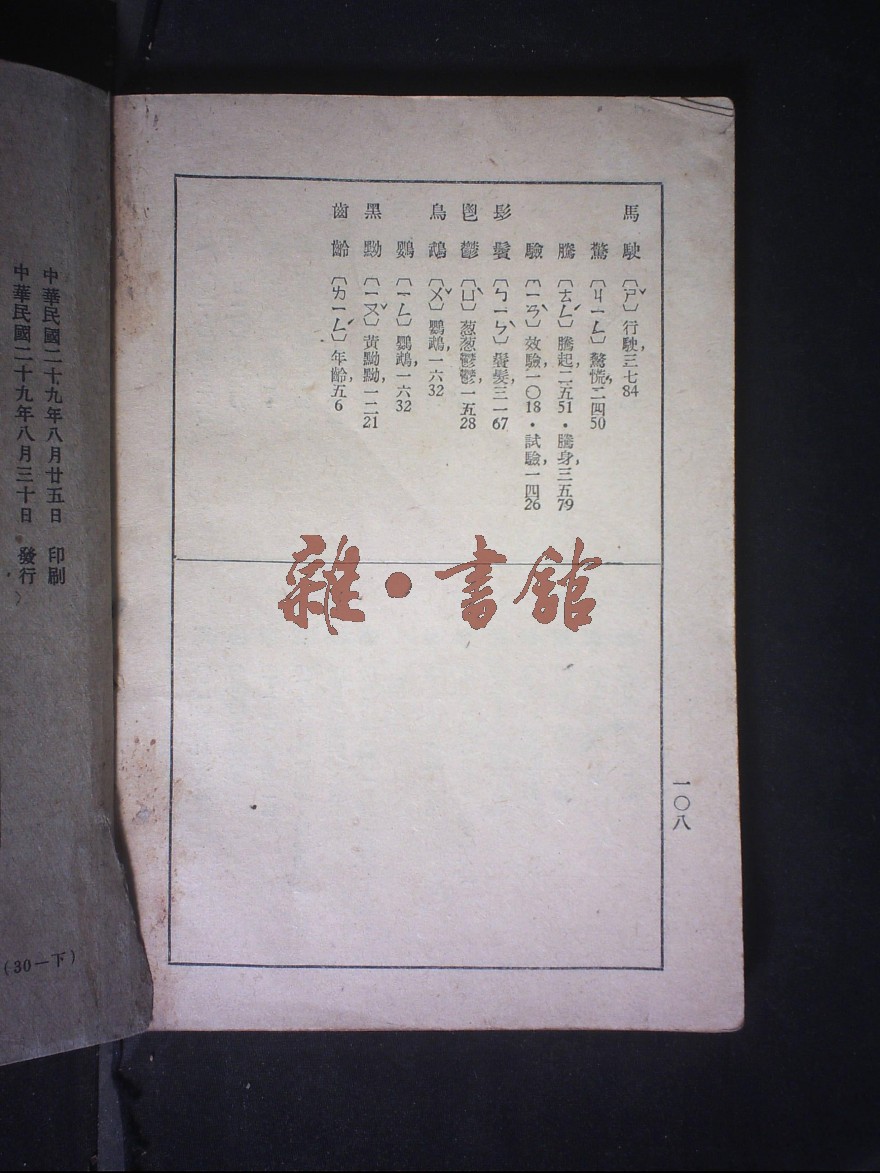 馬　駛〔ㄕˇ〕行駛，三七84
驚〔ㄐㄧㄥ〕驚慌，二四50
騰〔ㄊㄥˊ〕騰起，二五51・騰身，三五79
驗〔ㄧㄢˋ〕效驗，一〇18・試驗，一四26
髟　鬢〔ㄅㄧㄣˋ〕鬢髮，三一67
鬯　鬱〔ㄩˋ〕葱葱鬱鬱，一五28
鳥　鵡〔ㄨˇ〕鸚鵡，一六32
鸚〔ㄧㄥ〕鸚鵡，一六32
黑　黝〔ㄧㄡˇ〕黃黝黝，一二21
齒　齡〔ㄌㄧㄥˊ〕年齡，五6
一〇八
雜・書館
中華民國二十九年八月廿五日　印刷
中華民國二十九年八月三十日　發行
(30—下)